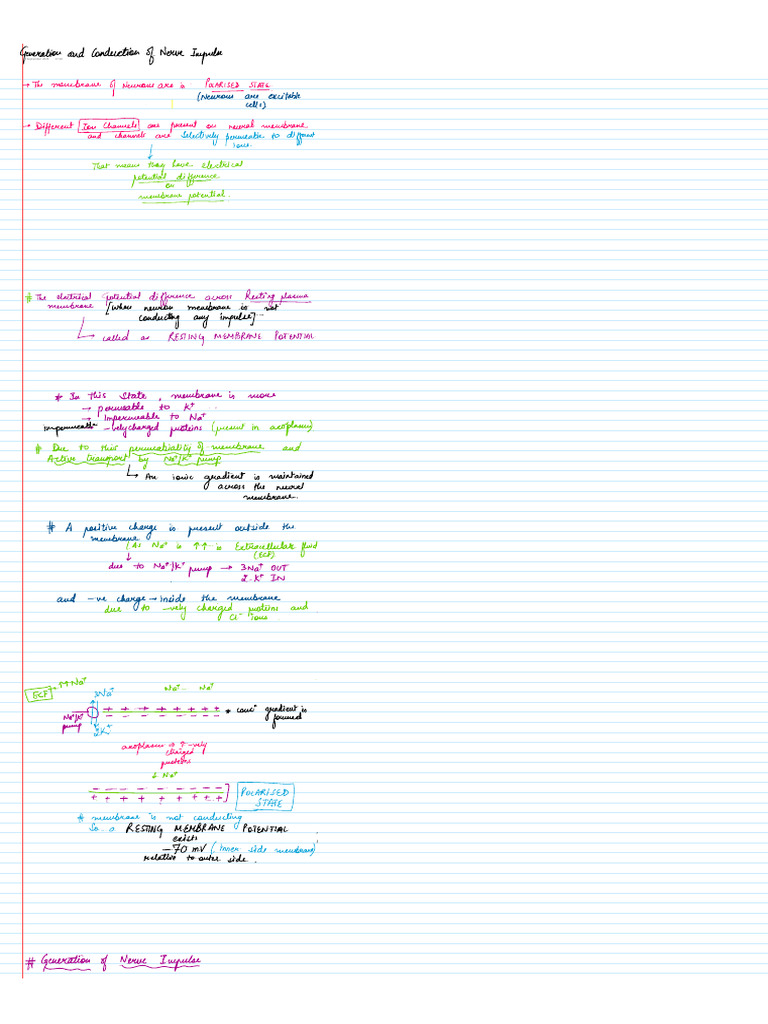 Generation and Conduction of Nerve Impulse
→ The membrane of Neurons are is POLARISED STATE
(Neurons are excitable
cells)
→ Different Ion Channels are present on neural membrane
and channels are Selectively permeable to different
ions
↓
That means they have electrical
potential difference
or
membrane potential.
# The electrical potential difference across Resting plasma
membrane [whose neuron membrane is not
conducting any impulse]
↳ called as RESTING MEMBRANE POTENTIAL
* In this State, membrane is more
→ permeable to K⁺
→ Impermeable to Na⁺
impermeable -vely charged proteins (present in axoplasm)
# Due to this permeability of membrane and
Active transport by Na⁺/K⁺ pump
↳ An ionic gradient is maintained
across the neural
membrane.
# A positive charge is present outside the
membrane
(As Na⁺ is ↑↑ is Extracellular fluid
(ECF)
↓
due to Na⁺/K⁺ pump → 3Na⁺ OUT
2 K⁺ IN
and -ve charge → inside the membrane
due to -vely charged proteins and
Cl⁻ ions
ECF ↑↑ Na⁺
3Na⁺ Na⁺ Na⁺
+ + + + + + + + * conc' gradient is
formed
Na⁺/K⁺
pump
2K⁺
- - - - - - - -
axoplasm → ↑ -vely
charged
proteins
↓ Na⁺
- - - - - - - -
+ + + + + + + +
POLARISED
STATE
* membrane is not conducting
So a RESTING MEMBRANE POTENTIAL
exists
-70 mV (inner side membrane)
relative to outer side.
# Generation of Nerve Impulse